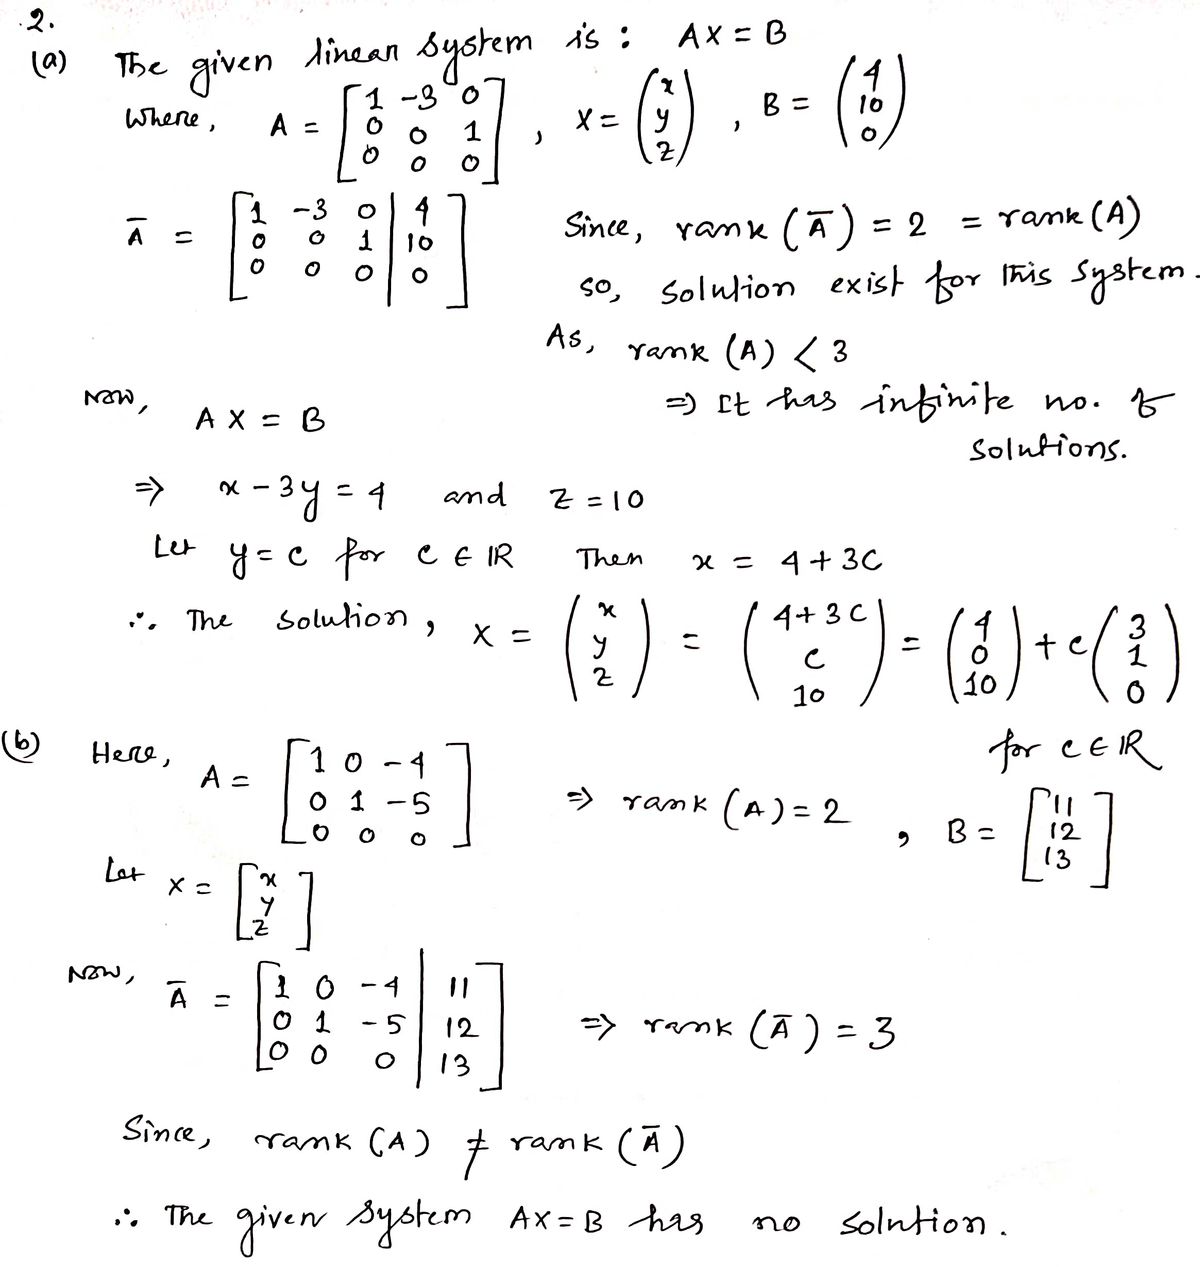 2.
(a) The given linear system is : AX = B
Where, A = [1 -3 0; 0 0 1; 0 0 0], X = (x; y; z), B = (4; 10; 0)
Ā = [1 -3 0 | 4; 0 0 1 | 10; 0 0 0 | 0]
Since, rank (Ā) = 2 = rank (A)
so, solution exist for this system.
As, rank (A) < 3
⇒ It has infinite no. of solutions.
Now, AX = B
⇒ x - 3y = 4 and z = 10
Let y = c for c ∈ ℝ Then x = 4 + 3c
∴ The solution, X = (x; y; z) = (4+3c; c; 10) = (4; 0; 10) + c (3; 1; 0)
for c ∈ ℝ
(b) Here, A = [1 0 -4; 0 1 -5; 0 0 0] ⇒ rank (A) = 2, B = [11; 12; 13]
Let X = [x; y; z]
Now, Ā = [1 0 -4 | 11; 0 1 -5 | 12; 0 0 0 | 13] ⇒ rank (Ā) = 3
Since, rank (A) ≠ rank (Ā)
∴ The given system AX = B has no solution.